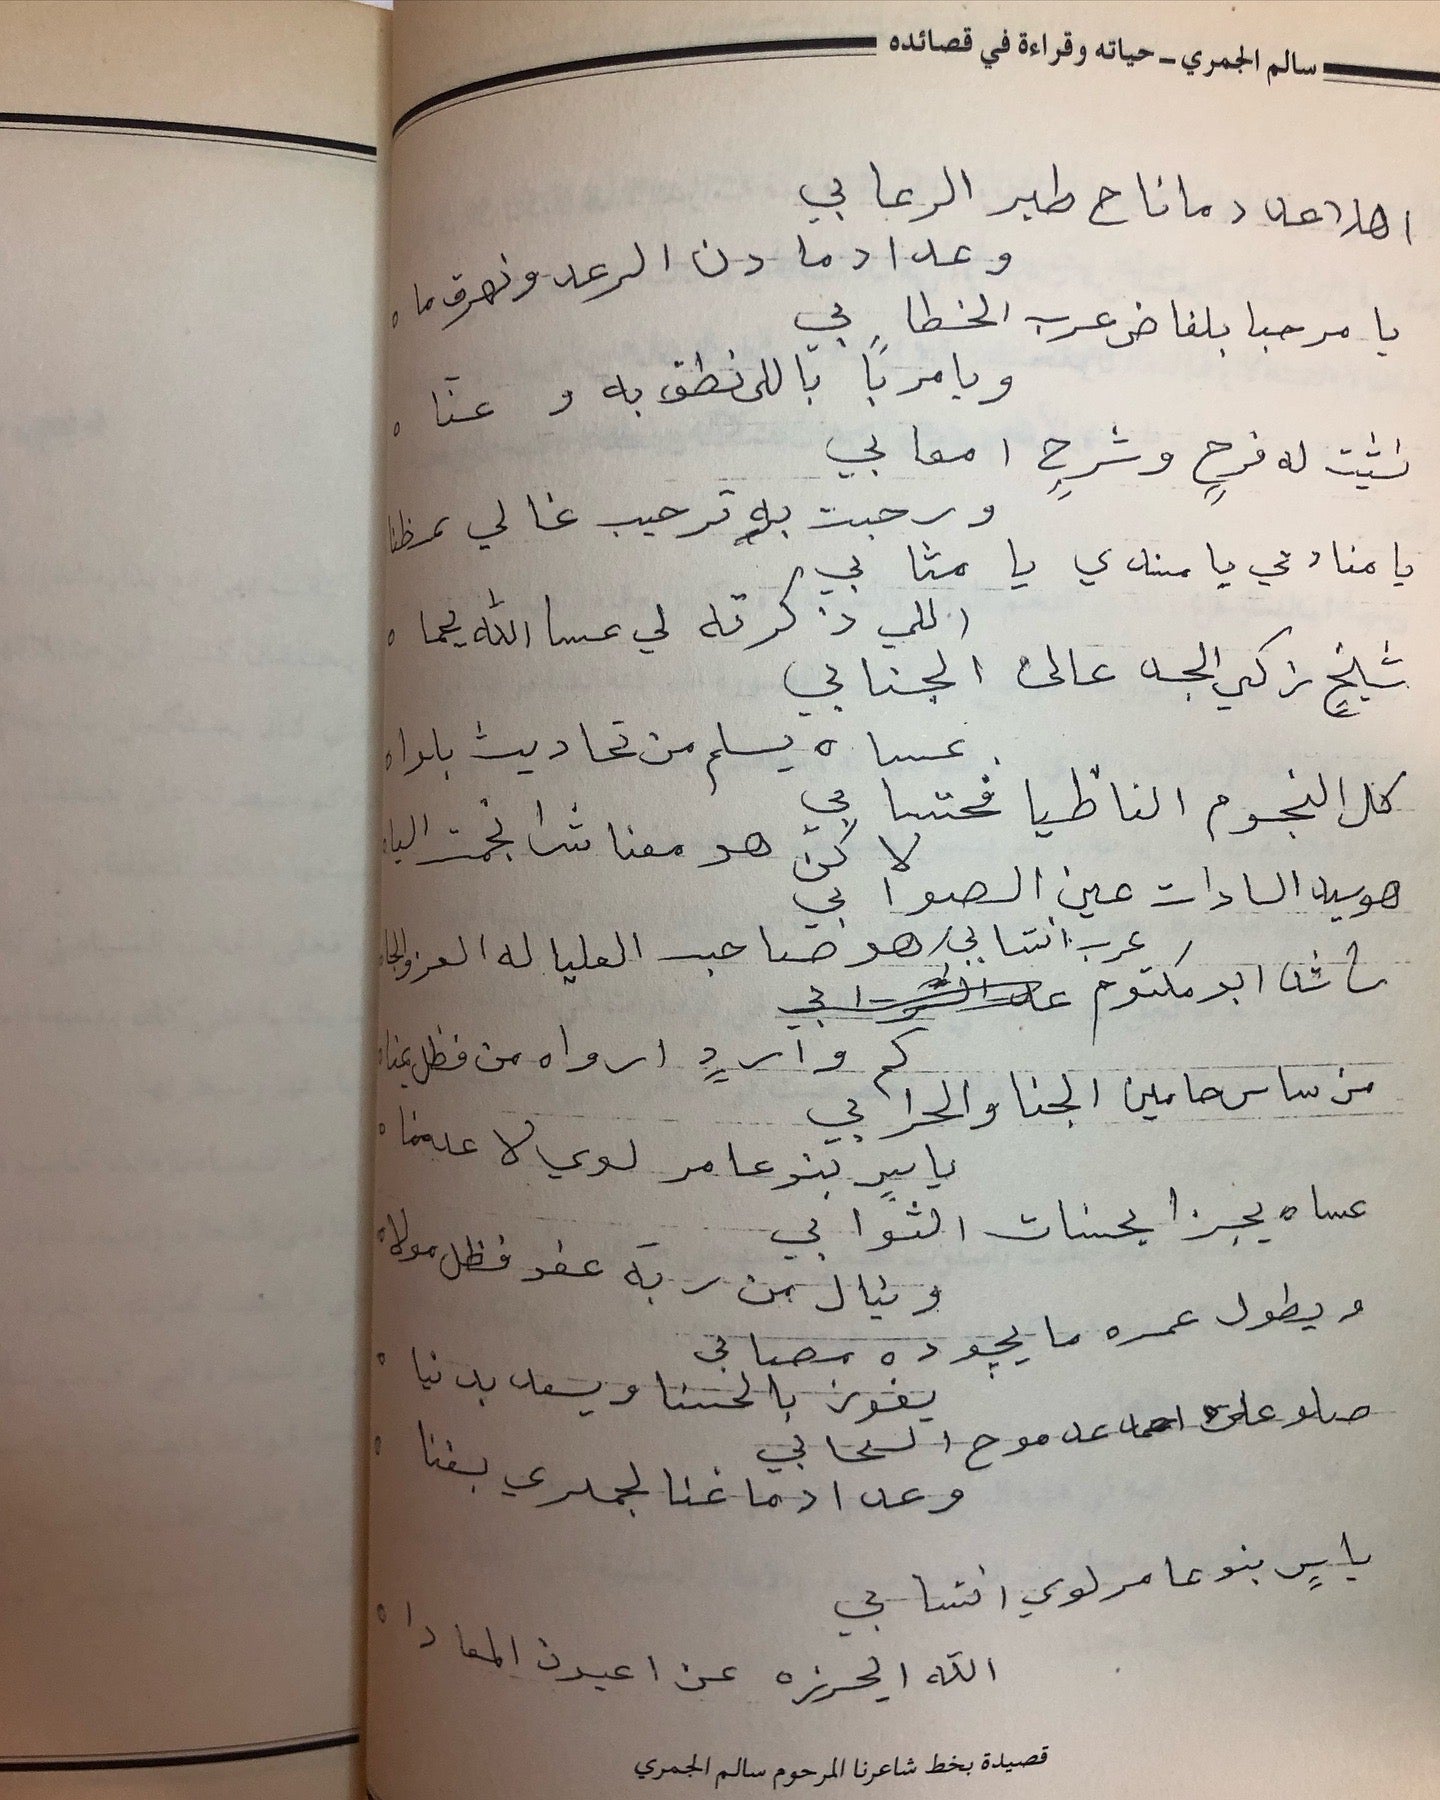 سالم الجمري - حياته وقراءة في قصائده
اهلا عد دماناح طير الرعا بي
وعداد ما دن الرعد ونهرق ماه
يا مرحبا بلفاض عرب الخطا بي
ويا مربًا باللى نطق به و عنّاه
نثيت له فرحٍ وشرحٍ امعا بي
ورحبت بهٍ ترحيب غالي
يا منادمي يا مسندي يا مثا بي
اللي ذكرته لي عسا الله يحماه
شيخٍ زكي الجد عالى الجنا بي
عساه يسلم من تحاديث بلواه
كل النجوم الناظيا فحتسا بي
لا كن هو
هو سيد السادات عين الصوا بي
هو صاحب العليا له العز والجاه
راشد ابو مكتوم عد عرب انتسا بي
كم واردٍ ارواه من فظل يمناه
من ساس حامين الجنا والحرا بي
ياسرٍ بنو عامر لوي لا عدمناه
عساه يجزا بحسنات الثوا بي
وينال من ربه عفو فظل مولاه
ويطول عمره ما يجوده مصا بي
يفوز بالحسنا ويسعد بدنياه
صلو على احمد عد موح السحا بي
وعداد ما غنا لجمري بغناه
ياسٍ بنو عامر لوي انتسا بي
الله ايحرزه عن اعيون المعاداه
قصيدة بخط شاعرنا المرحوم سالم الجمري